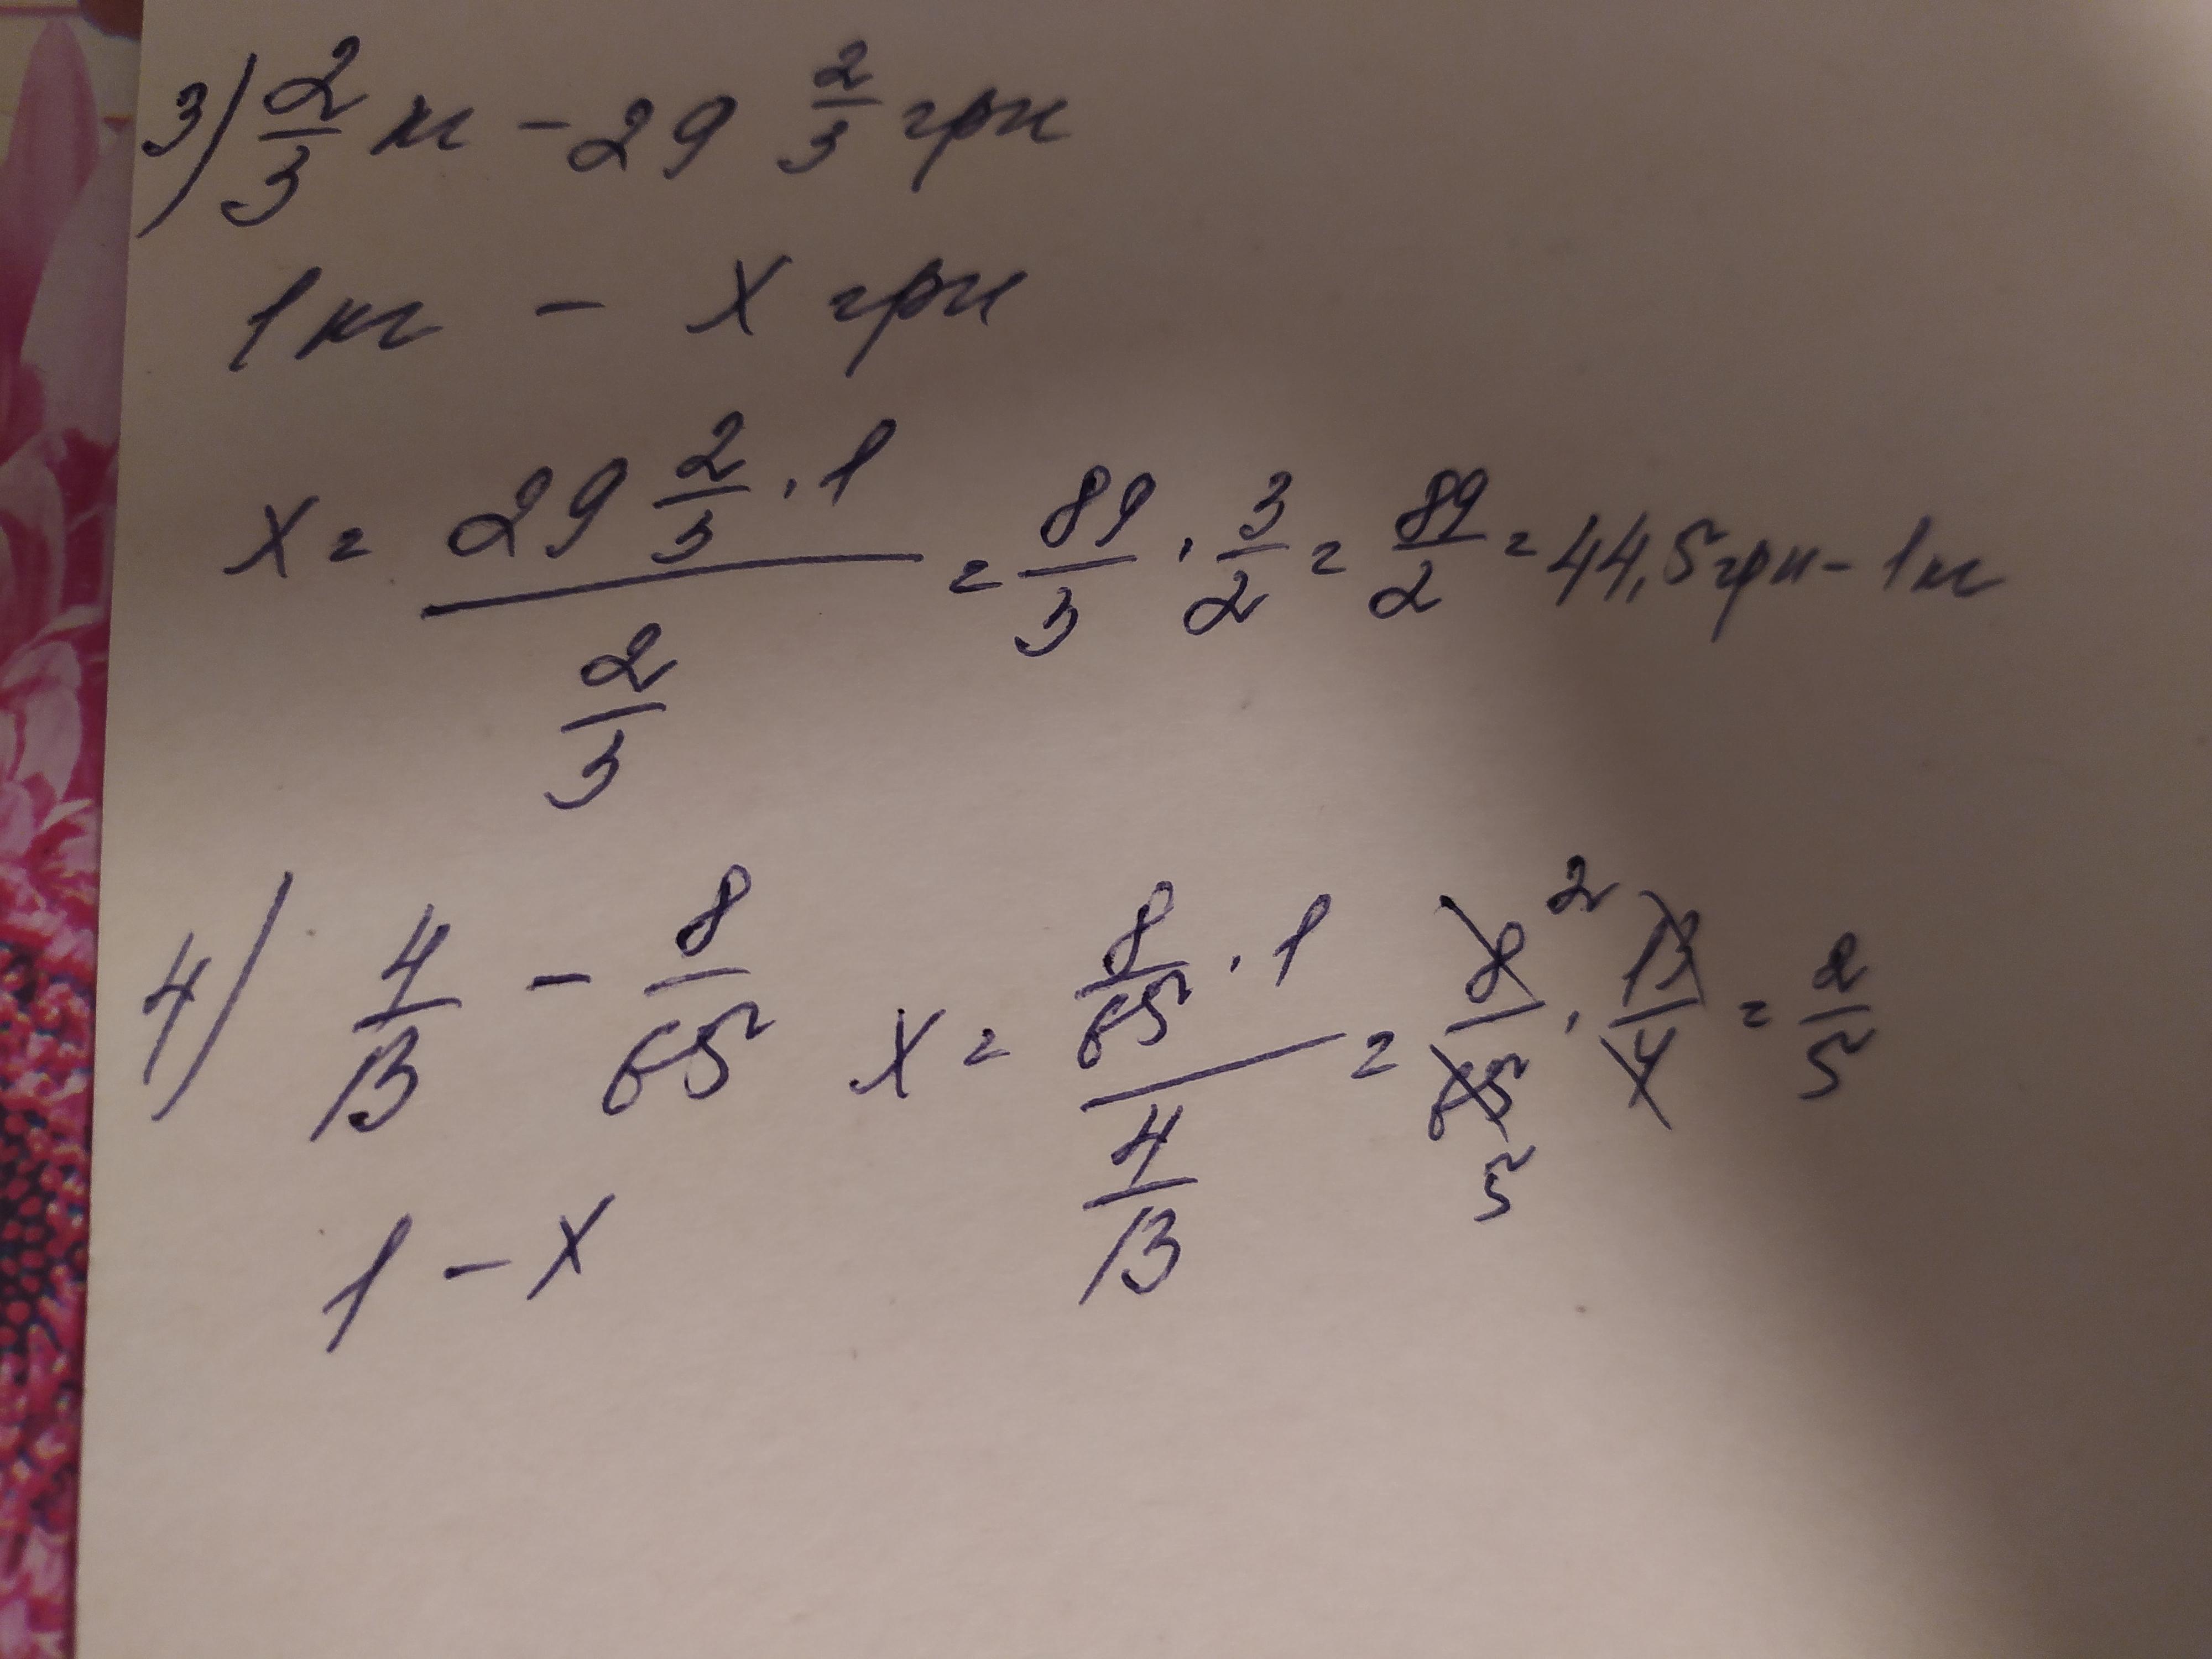 3) 2/3 кг - 29 2/3 грн
1 кг - x грн
x = (29 2/3 · 1) / (2/3) = 89/3 · 3/2 = 89/2 = 44,5 грн - 1 кг
4) 4/13 - 8/65 x = (8/65 · 1) / (4/13) = 8 2/65 5 · 13/4 = 2/5
1 - x